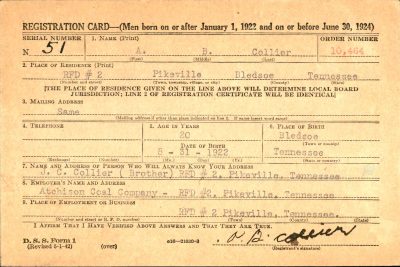 REGISTRATION CARD—(Men born on or after January 1, 1922 and on or before June 30, 1924)
SERIAL NUMBER 1. NAME (Print) ORDER NUMBER
N 51 A. B. Collier 10,464
(First) (Middle) (Last)
2. PLACE OF RESIDENCE (Print)
RFD # 2 Pikeville Bledsoe Tennessee
(Number and street) (Town, township, village, or city) (County) (State)
[THE PLACE OF RESIDENCE GIVEN ON THE LINE ABOVE WILL DETERMINE LOCAL BOARD
JURISDICTION; LINE 2 OF REGISTRATION CERTIFICATE WILL BE IDENTICAL]
3. MAILING ADDRESS
Same
(Mailing address if other than place indicated on line 2. If same insert word same)
4. TELEPHONE 5. AGE IN YEARS 6. PLACE OF BIRTH
20 Bledsoe
DATE OF BIRTH (Town or county)
5 - 31 - 1922 Tennessee
(Exchange) (Number) (Mo.) (Day) (Yr.) (State or country)
7. NAME AND ADDRESS OF PERSON WHO WILL ALWAYS KNOW YOUR ADDRESS
J. C. Collier ( Brother) RFD #2, Pikeville, Tennessee
8. EMPLOYER'S NAME AND ADDRESS
Atchison Coal Company - RFD #2, Pikeville, Tennessee
9. PLACE OF EMPLOYMENT OR BUSINESS
RFD # 2 Pikeville, Tennessee.
(Number and street or R. F. D. number) (Town) (County) (State)
I AFFIRM THAT I HAVE VERIFIED ABOVE ANSWERS AND THAT THEY ARE TRUE.
D. S. S. Form 1
(Revised 6-1-42) (over) B. Collier
(Registrant's signature)